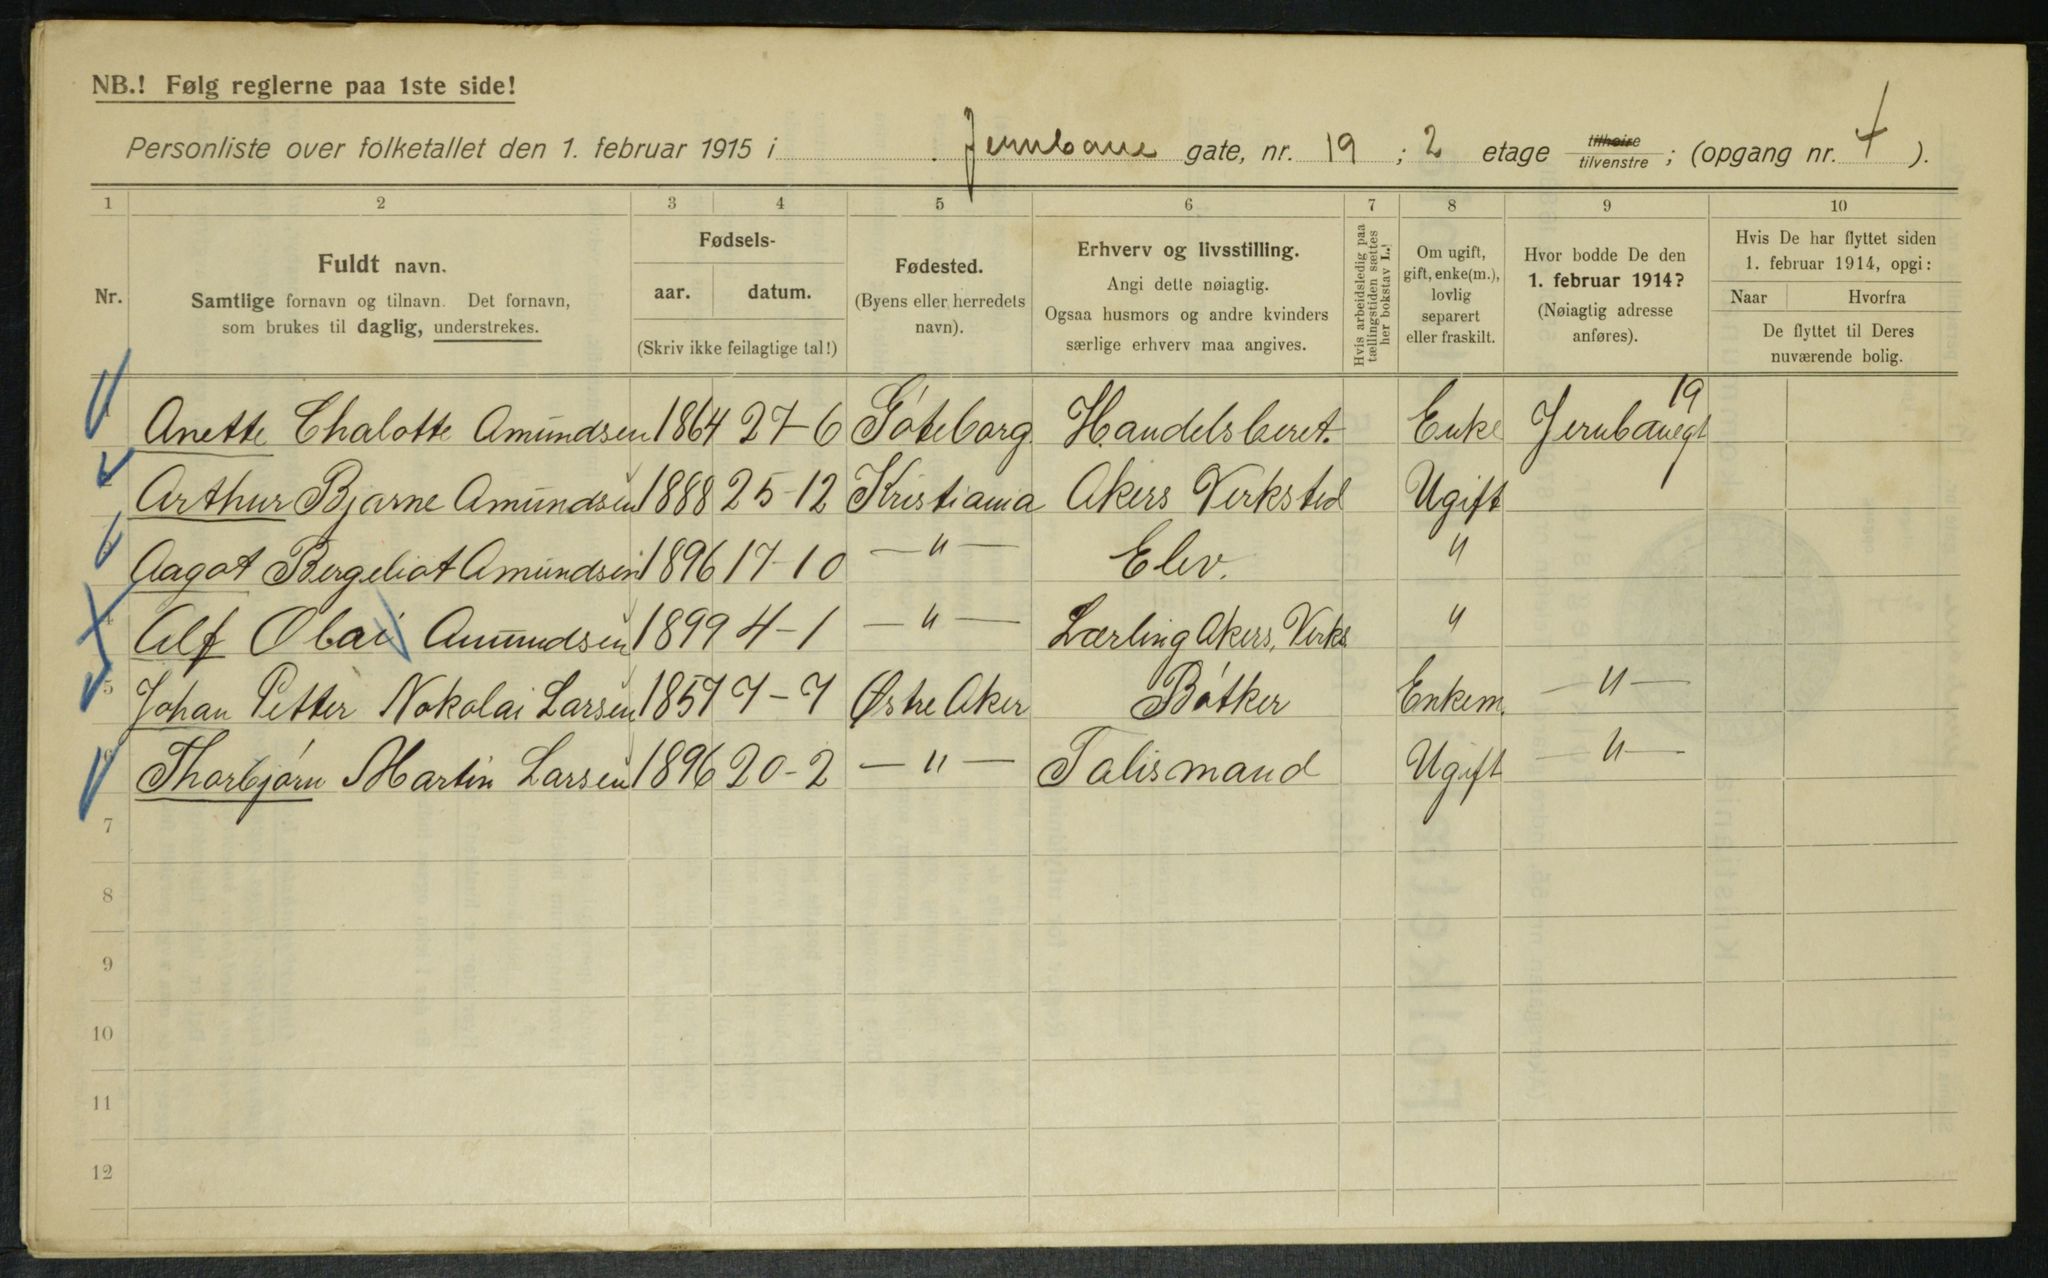 NB.! Følg reglerne paa 1ste side!
Personliste over folketallet den 1. februar 1915 i Jernbane gate, nr. 19 ; 2 etage tilhøire / tilvenstre ; (opgang nr. 4 ).
1 2 3 4 5 6 7 8 9 10
Nr.
Fuldt navn.
Samtlige fornavn og tilnavn. Det fornavn,
som brukes til daglig, understrekes.
Fødsels-
aar. datum.
(Skriv ikke feilagtige tal!)
Fødested.
(Byens eller herredets
navn).
Erhverv og livsstilling.
Angi dette nøiagtig.
Ogsaa husmors og andre kvinders
særlige erhverv maa angives.
Hvis arbeidsledig paa
tællingstiden sættes
her bokstav L.!
Om ugift,
gift, enke(m.),
lovlig
separert
eller fraskilt.
Hvor bodde De den
1. februar 1914?
(Nøiagtig adresse
anføres).
Hvis De har flyttet siden
1. februar 1914, opgi:
Naar Hvorfra
De flyttet til Deres
nuværende bolig.
Anette Chalotte Amundsen 1864 27-6 Göteborg Handelsberet. Enke Jernbanegt 19
Arthur Bjarne Amundsen 1888 25-12 Kristiania Akers Verksted Ugift
Aagot Bergeliot Amundsen 1896 17-10 — " — Elev. "
4 Alf Olai Amundsen 1899 4-1 — " — Lærling Akers, Verks "
5 Johan Petter Nokolai Larsen 1857 7-7 Østre Aker Bötker Enkem. — " —
6 Thorbjørn Martin Larsen 1896 20-2 — " — Talismand Ugift — " —
7
8
9
10
11
12